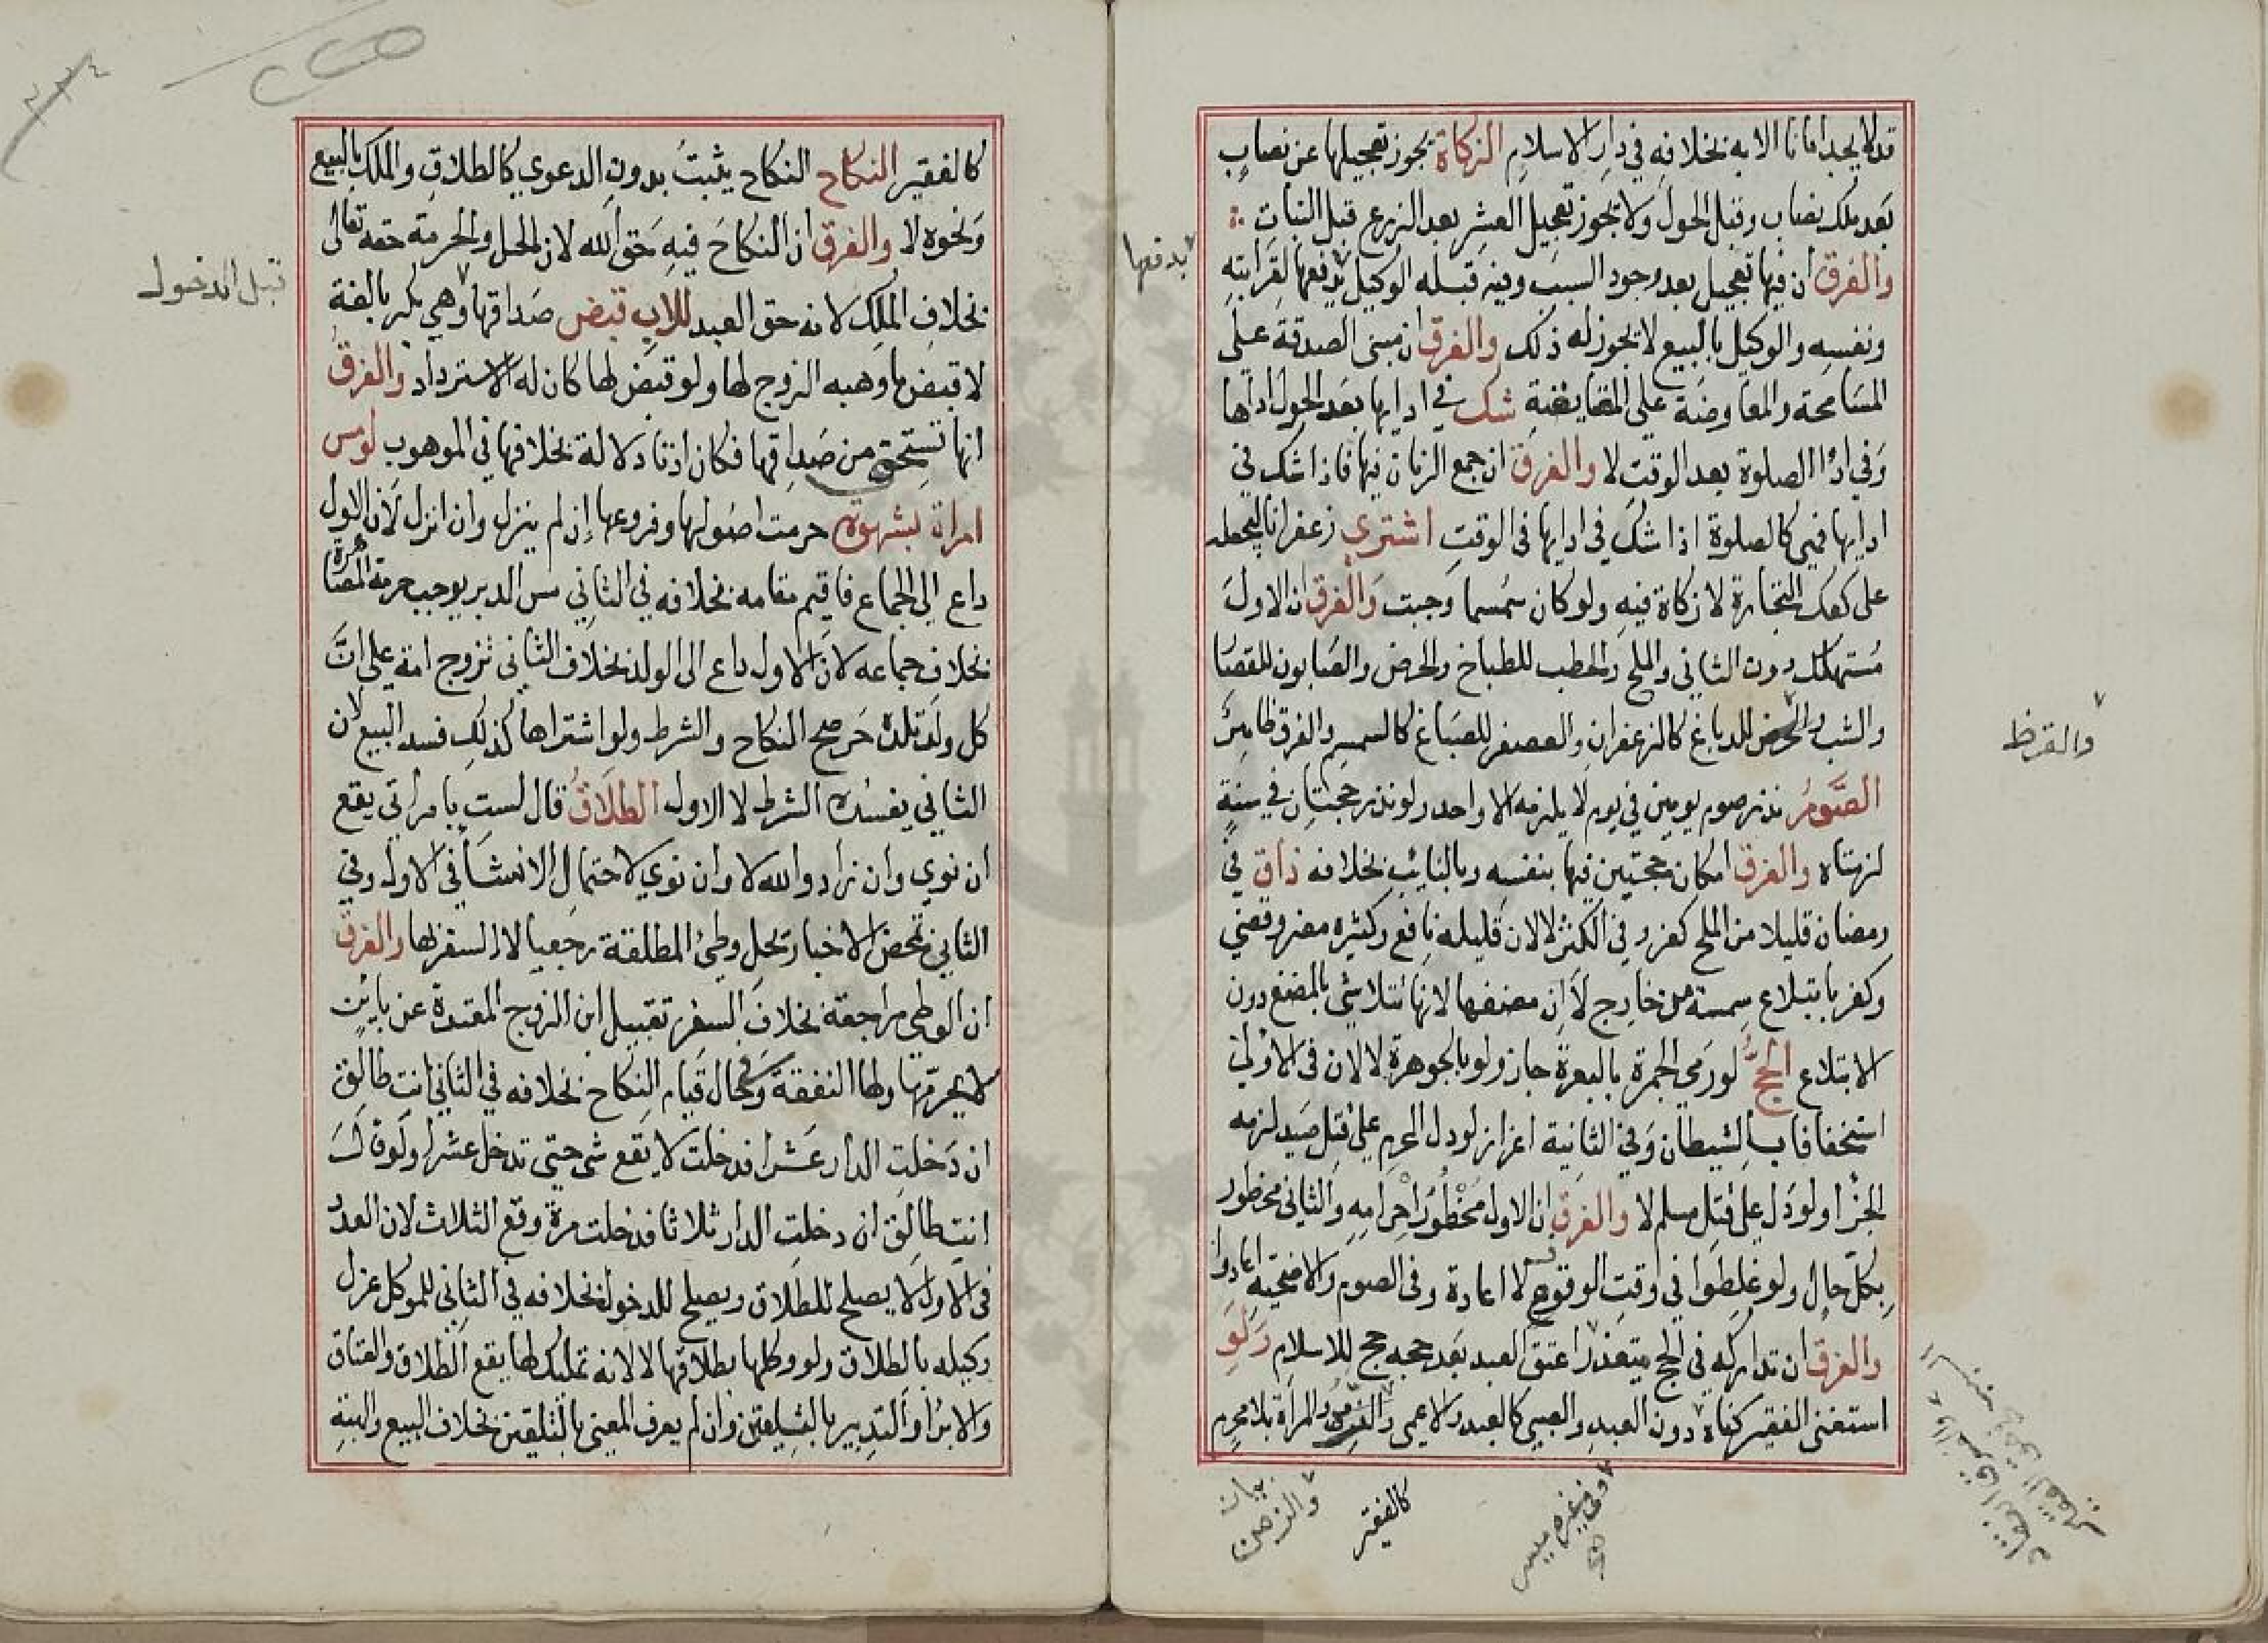 قد لا يجد امانا الا به بخلافه في دار الاسلام الزكاة يجوز تعجيلها عن نصاب
بعد ملك نصاب وقبل الحول ولا يجوز تعجيل العشر بعد الزرع قبل النبات
والفرق ان فيها تعجيل بعد وجود السبب وفيه قبله الوكيل يدفعها لقرابته
ونفسه والوكيل بالبيع لا يجوز له ذلك والفرق ان مبنى الصدقة على
المسامحة والمعاوضة على المضايقة شك في ادايها بعد الحول اداها
وفي ادا الصلوة بعد الوقت لا والفرق ان جمع الزمان فيها فاذا شك في
ادايها فهي كالصلوة اذا شك في ادايها في الوقت اشترى زعفرانا ليجعله
على كعك التجارة لا زكاة فيه ولو كان سمسما وجبت والفرق ان الاول
مستهلك دون الثاني والملح والحطب للطباخ والحرض والصابون للقصار
والشب للدباغ كالزعفران والعصفر للصباغ كالسمسم والفرق ظاهر
الصوم نذر صوم يومين في يوم لا يلزمه الا واحد ولو نذر حجتان في سنة
لزمتاه والفرق امكان حجتين فيها بنفسه وبالنايب بخلافه ذاق في
رمضان قليلا من الملح كفر وفي الكثير لا لان قليله نافع وكثيره مضر وقضي
وكفر بابتلاع سمسمة من خارج لا ان مضغها لانها تتلاشي بالمضغ دون
الابتلاع الحج لو رمى الجمرة بالبعرة جاز ولو بالجوهرة لا لان في الاولى
استخفافا بالشيطان وفي الثانية اعزاز لو دل المحرم على قتل صيد لزمه
الجزا ولو دل على قتل مسلم لا والفرق ان الاول محظور احرامه والثاني محظور
بكل حال ولو غلطوا في وقت الوقوف لا اعادة وفي الصوم والاضحية اعادوا
والفرق ان تداركه في الحج متعذر اعتق العبد بعد حجه حج للاسلام ولو
استغنى الفقير كفاه دون العبد والصبي كالعبد والاعمى والمراة بلا محرم
يدفعها
والقرظ
والزمن
كالفقير
كالفقير النكاح النكاح يثبت بدون الدعوي كالطلاق والملك بالبيع
ونحوه لا والفرق ان النكاح فيه حق الله لان الحل والحرمة حقه تعالى
بخلاف الملك لانه حق العبد للاب قبض صداقها وهي بكر بالغة
لا قبض ما وهبه الزوج لها ولو قبض لها كان له الاسترداد والفرق
انها تستحق من صداقها فكان اذنا دلالة بخلافها في الموهوب لو مس
امراة بشهوة حرمت اصولها وفروعها ان لم ينزل وان انزل لا لان الاول
داع الي الجماع فاقيم مقامه بخلافه في الثاني مس الدبر يوجب حرمة المصاهرة
بخلاف جماعه لان الاول داع الى الولد بخلاف الثاني تزوج امة علي ان
كل ولد تلده حر صح النكاح والشرط ولو اشتراها كذلك فسد البيع لان
الثاني يفسده الشرط لا الاول الطلاق قال لست بامراتي يقع
ان نوي وان زاد والله لا وان نوي لاحتمال الانشا في الاول وفي
الثاني تمحض الاخبار يحل وطئ المطلقة رجعيا لا السفر بها والفرق
ان الوطي مراجعة بخلاف السفر تقبيل ابن الزوج المعتدة عن باين
لا يحرمها ولها النفقة وفي حال قيام النكاح بخلافه في الثاني انت طالق
ان دخلت الدار عشرا فدخلت لا يقع شي حتي تدخل عشرا ولو قال
انت طالق ان دخلت الدار ثلاثا فدخلت مرة وقع الثلاث لان العدد
في الاول لا يصلح للطلاق ويصلح للدخول بخلافه في الثاني للموكل عزل
وكيله بالطلاق ولو وكلها بطلاقها لا لانه تمليك لها يقع الطلاق والعتاق
والابرا والتدبير بالتلقين وان لم يعرف المعنى بالتلقين بخلاف البيع والهبة
قبل الدخول